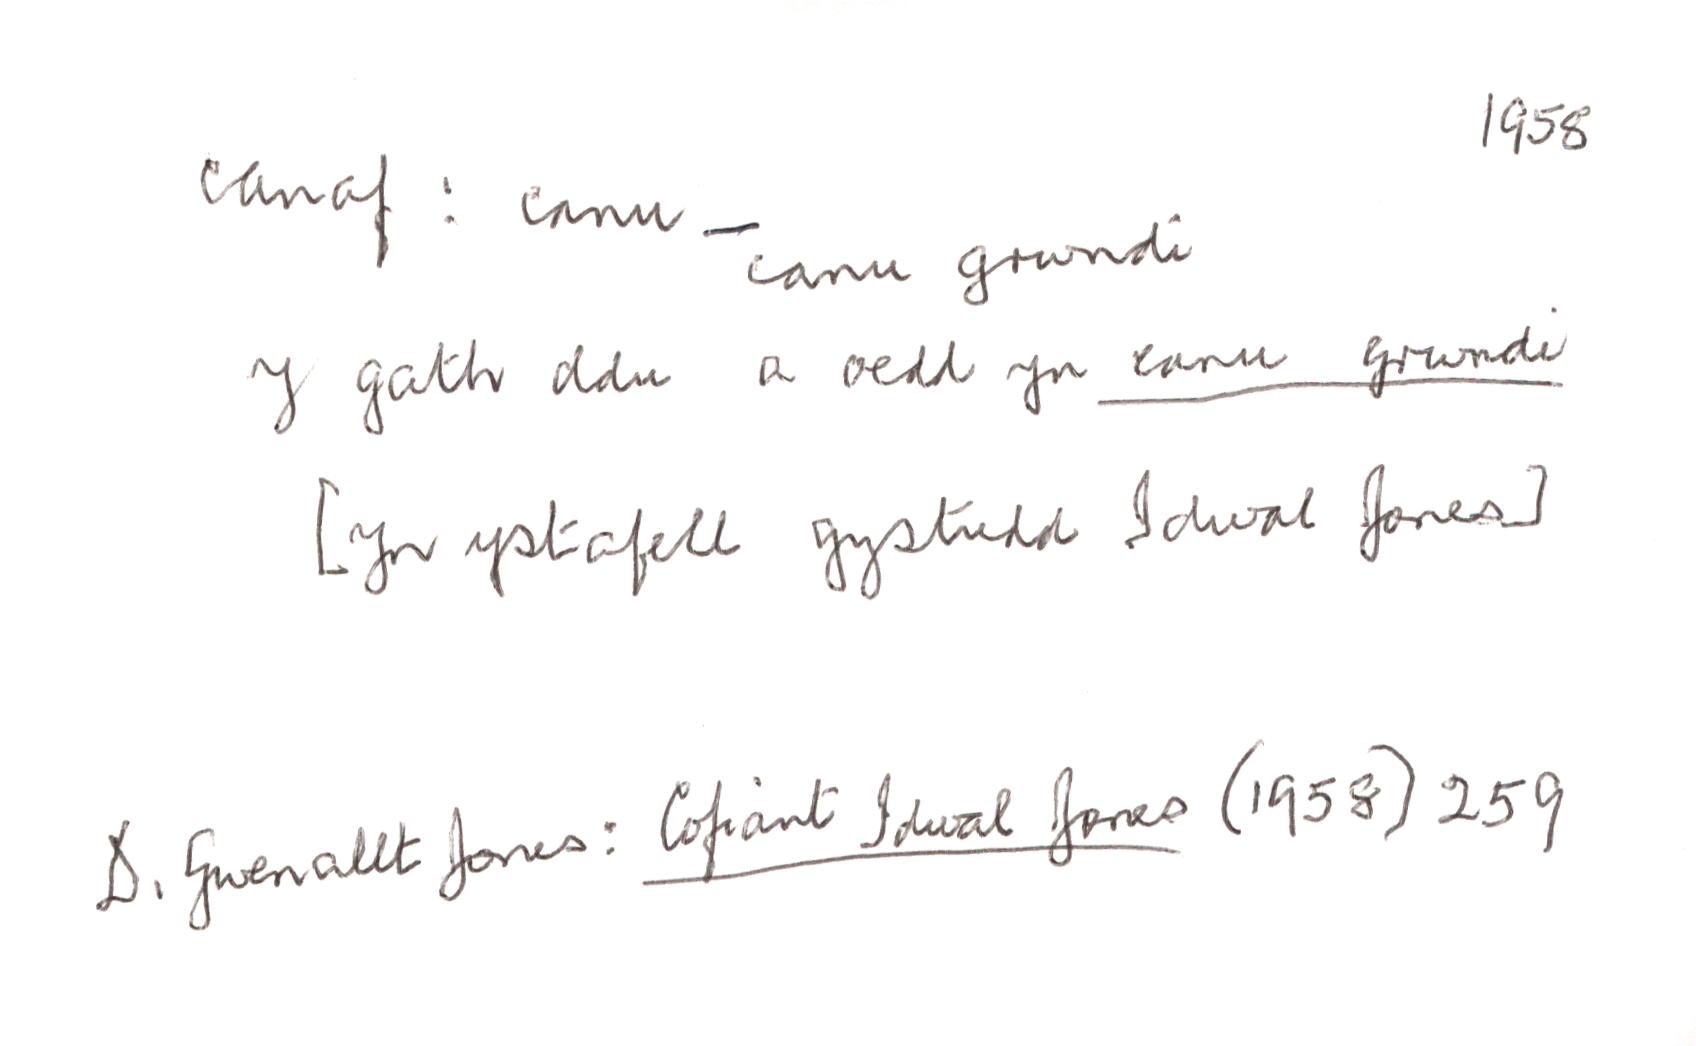 1958
canaf : canu –
canu grwndi
y gath ddu a oedd yn canu grwndi
[yn ystafell gystudd Idwal Jones]
D. Gwenallt Jones: Cofiant Idwal Jones (1958) 259